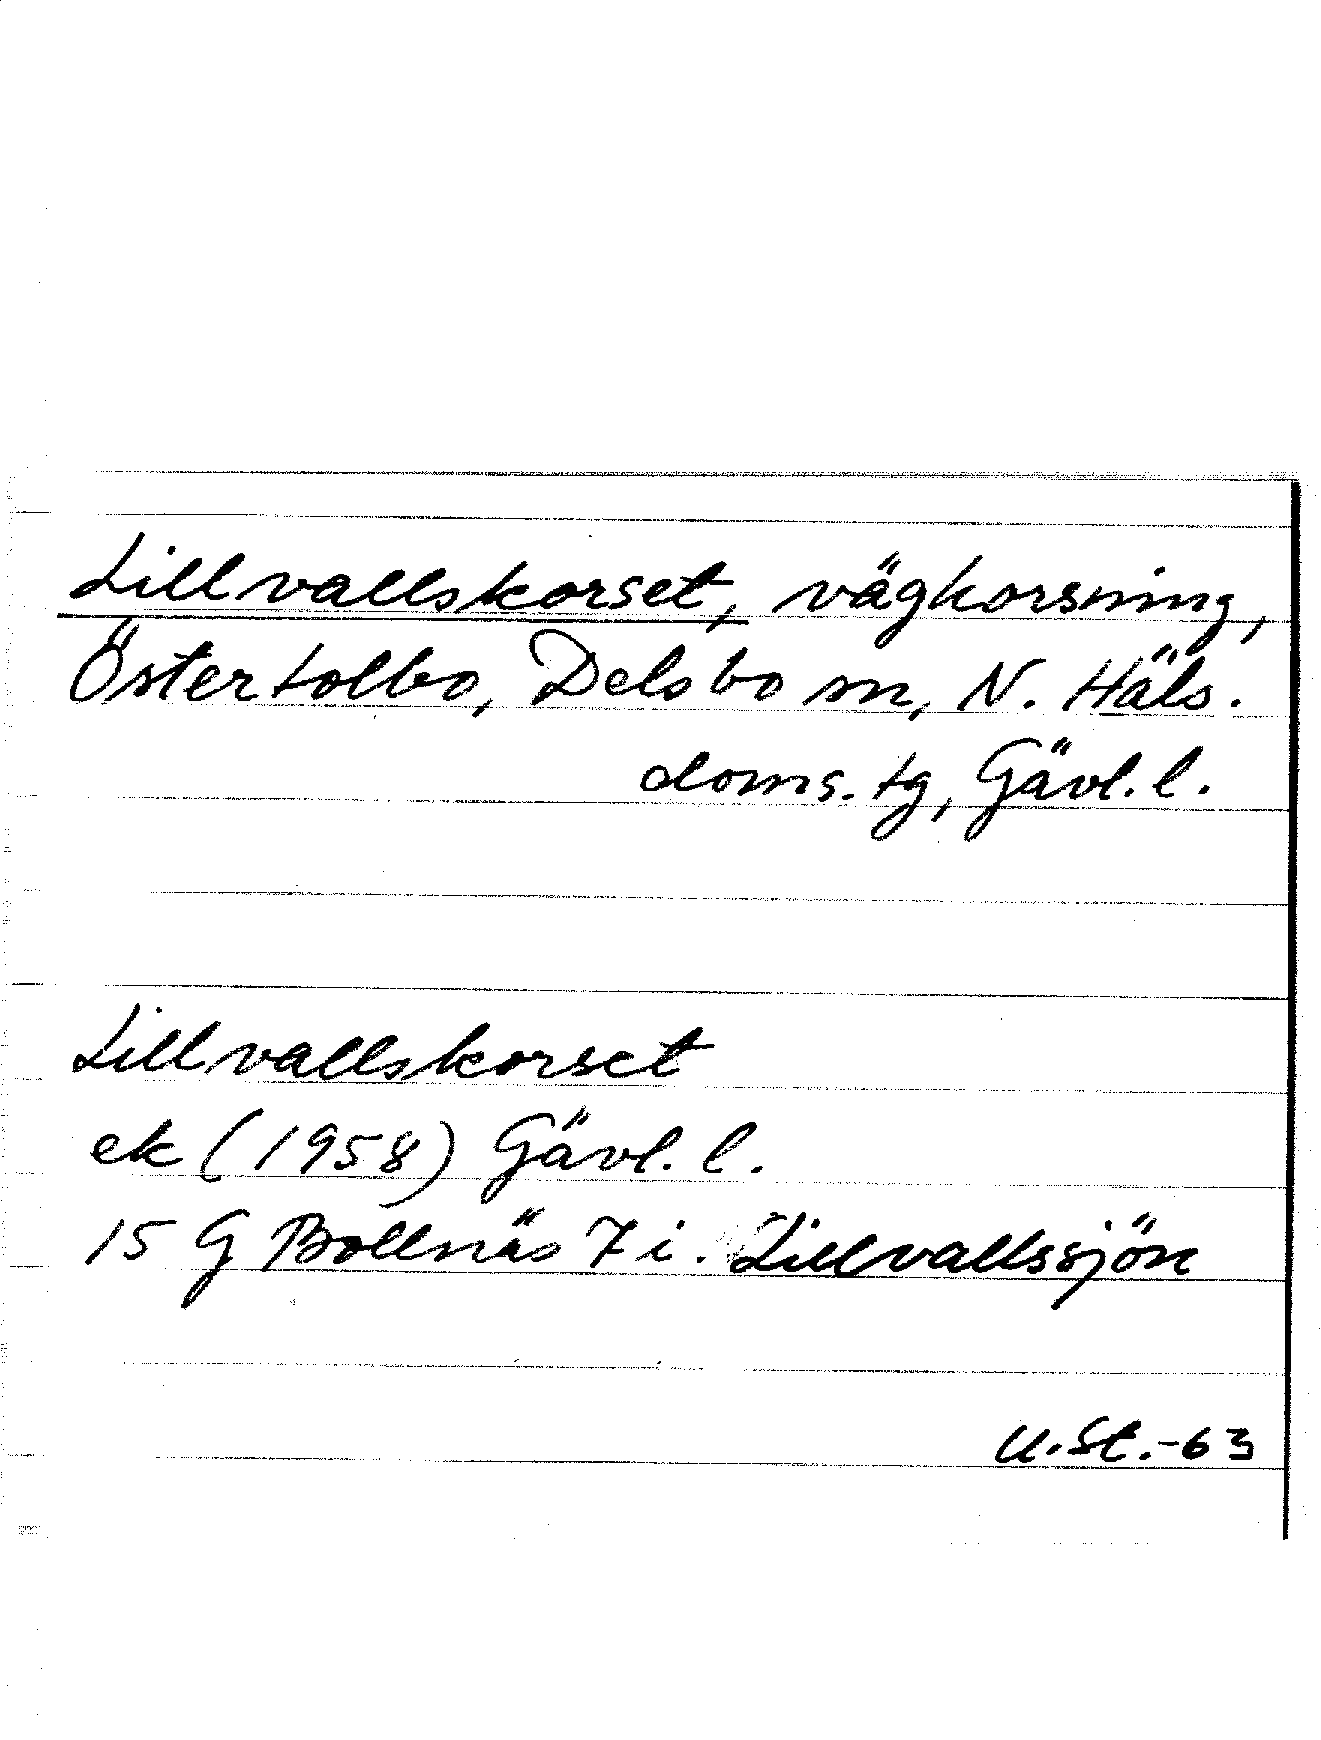 Lillvallskorset, vägkorsning,
Östertolbo, Delsbo sn, N. Häls.
doms. tg, Gävl. l.
Lillvallskorset
ek (1958) Gävl. l.
15 G Bollnäs 7 i. Lillvallssjön
U.St.-63